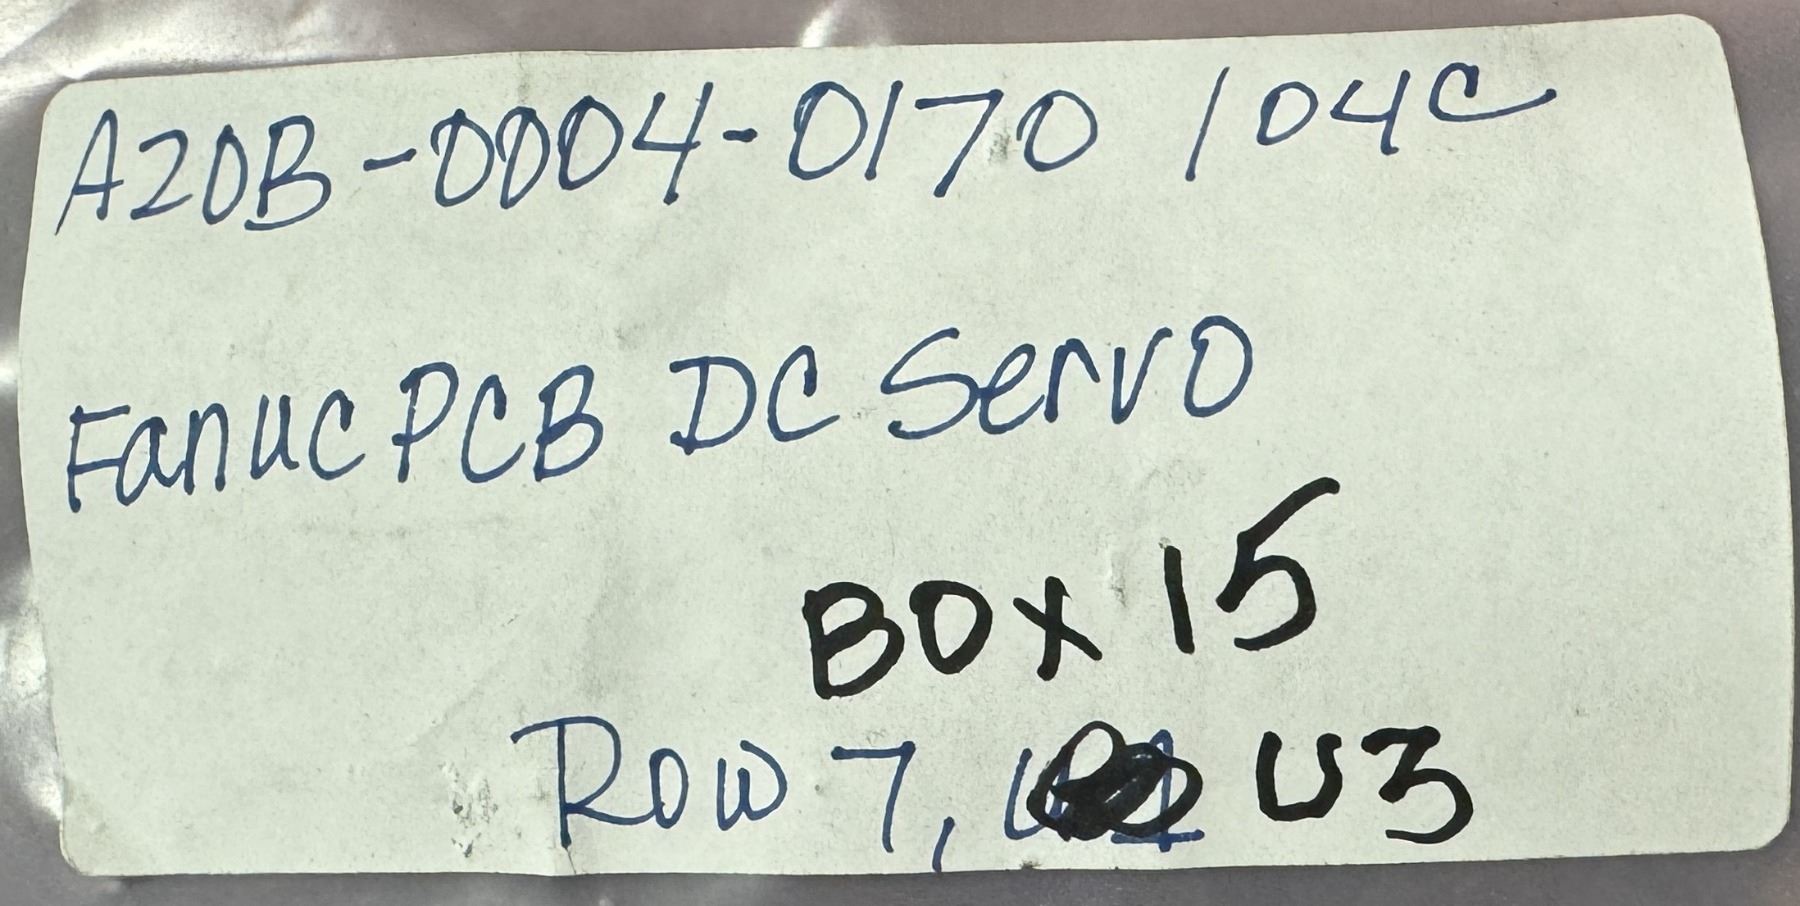 A20B-0004-0170 104C
Fanuc PCB DC Servo
BOX 15
Row 7, U3